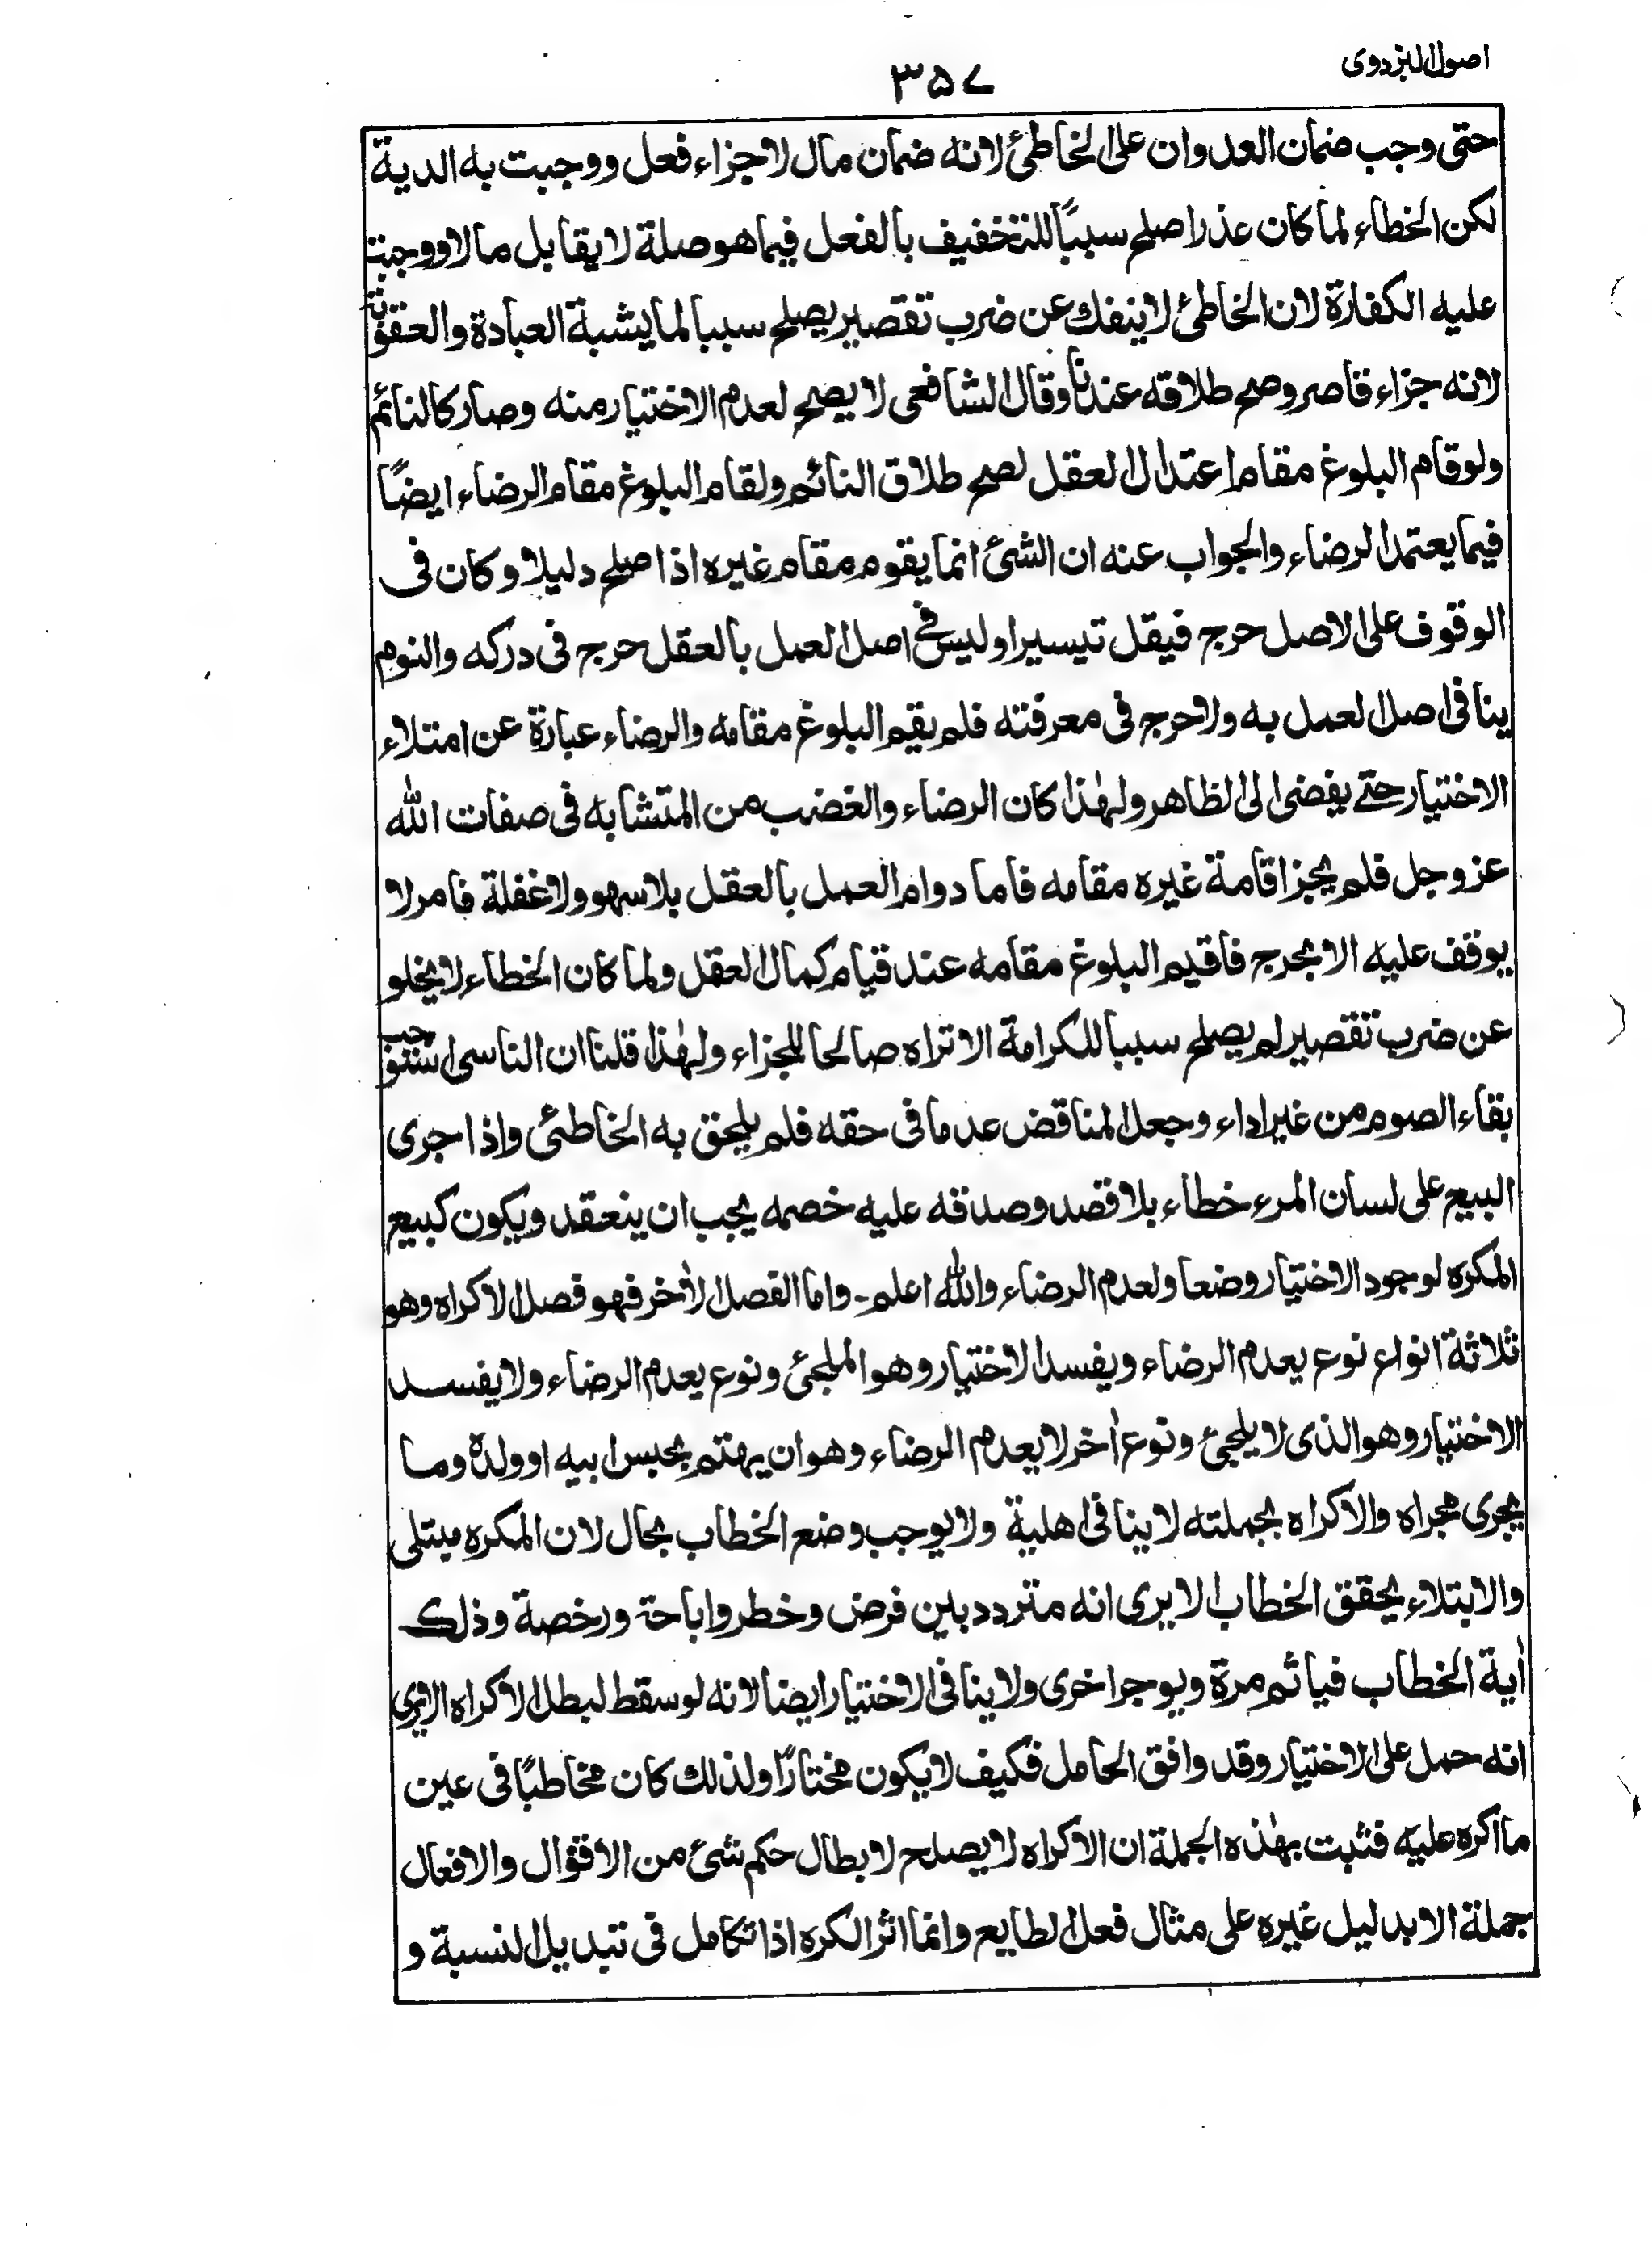 اصول البزدوى
٣٥٧
حتى وجب ضمان العدوان على الخاطئ لانه ضمان مال لاجزاء فعل ووجبت به الدية
لكن الخطاء لما كان عذرا صلح سببًا للتخفيف بالفعل فيما هو صلة لا يقابل مالا ووجبت
عليه الكفارة لان الخاطئ لاينفك عن ضرب تقصير يصلح سببا لما يشبة العبادة والعقوبة
لانه جزاء قاصر وصح طلاقه عندنا وقال الشافعى لا يصح لعدم الاختيار منه وصار كالنائم
ولو قام البلوغ مقام اعتدال العقل لصح طلاق النائم ولقام البلوغ مقام الرضاء ايضًا
فيما يعتمد الرضاء والجواب عنه ان الشئ انما يقوم مقام غيره اذا صلح دليلا وكان فى
الوقوف على الاصل حرج فيقل تيسيرا وليس فى اصل العمل بالعقل حرج فى دركه والنوم
ينافى اصل العمل به ولا حرج فى معرفته فلم يقم البلوغ مقامه والرضاء عبارة عن امتلاء
الاختيار حتى يفضى الى الظاهر ولهٰذا كان الرضاء والغضب من المتشابه فى صفات الله
عز وجل فلم يجز اقامة غيره مقامه فاما دوام العمل بالعقل بلا سهو ولا غفلة فامر لا
يوقف عليه الا بحرج فاقيم البلوغ مقامه عند قيام كمال العقل ولما كان الخطاء لا يخلو
عن ضرب تقصير لم يصلح سببا للكرامة الا تراه صالحا للجزاء ولهٰذا قلنا ان الناسى استوجب
بقاء الصوم من غير اداء وجعل المناقض عدما فى حقه فلم يلحق به الخاطئى واذا جرى
البيع على لسان المرء خطاء بلا قصد وصدقه عليه خصمه يجب ان ينعقد ويكون كبيع
المكره لوجود الاختيار وضعا ولعدم الرضاء والله اعلم - واما الفصل الأخر فهو فصل الاكراه وهو
ثلاثة انواع نوع يعدم الرضاء ويفسد الاختيار وهو الملجئ ونوع يعدم الرضاء ولا يفسد
الاختيار وهو الذى لا يلجئ ونوع أخر لا يعدم الرضاء وهو ان يهتم بحبس ابيه او ولدة وما
يجرى مجراه والاكراه بجملته لا ينافى اهلية ولا يوجب وضع الخطاب بحال لان المكره مبتلى
والابتلاء يحقق الخطاب الا يرى انه متردد بين فرض وخطر واباحة ورخصة وذلك
أية الخطاب فيأثم مرة ويوجر اخرى ولا ينافى الاختيار ايضا لانه لو سقط لبطل الاكراه الا يرى
انه حمل على الاختيار وقد وافق الحامل فكيف لا يكون مختارًا ولذلك كان مخاطبًا فى عين
ما اكره عليه فثبت بهٰذه الجملة ان الاكراه لا يصلح لابطال حكم شئ من الاقوال والافعال
جملة الا بدليل غيره على مثال فعل الطايع وانما اثر الكره اذا تكامل فى تبديل النسبة و